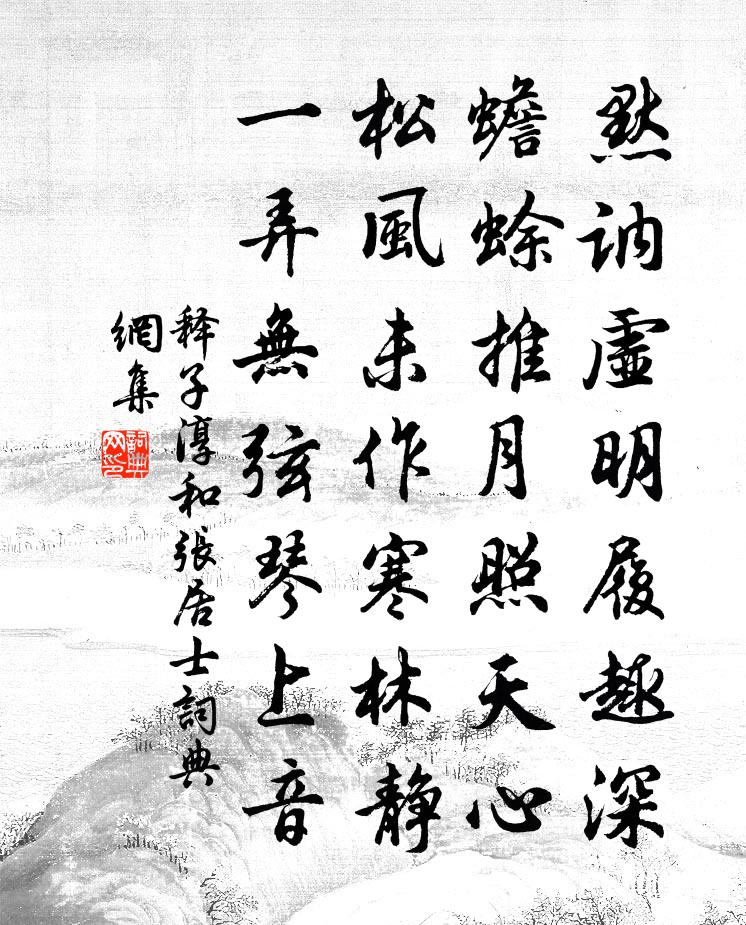 默訥虛明履趣深
蟾蜍推月照天心
松風未作寒林靜
一弄無弦琴上音
释子淳和張居士詞典
網集
詞典網印